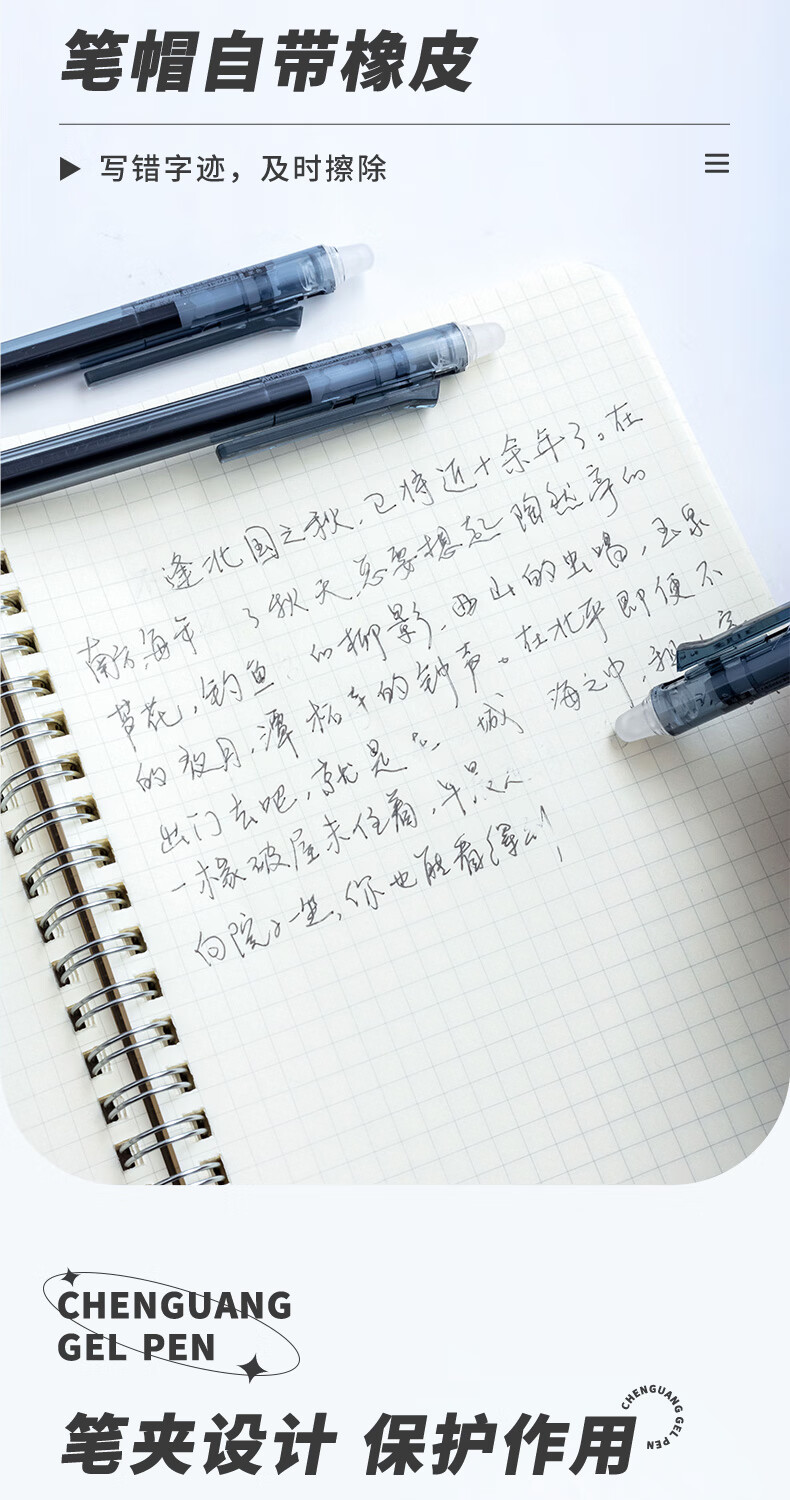 笔帽自带橡皮
写错字迹，及时擦除
逢北国之秋，已将近十余年了。在
南方海年 了秋天，总要想起陶然亭的
芦花，钓鱼 的柳影，西山的虫唱，玉泉
的夜月，潭柘寺的钟声。在北平即便不
出门去吧，就是 城 海之中，租
一椽破屋来住着，早晨
向院子一坐，你也能看得到
CHENGUANG
GEL PEN
笔夹设计 保护作用
CHENGUANG GEL PEN